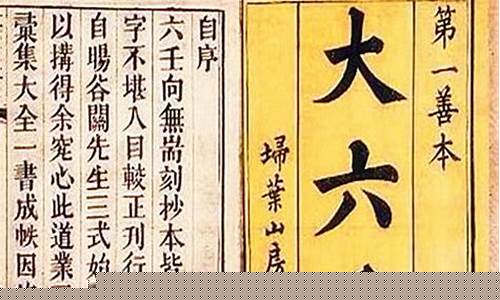 第一善本
大六
埽葉山房
自序
六壬向無耑刻抄本皆
字不堪入目較正刊行
自暘谷關先生三式始
以搆得余究心此道業
彚集大全一書成帙因